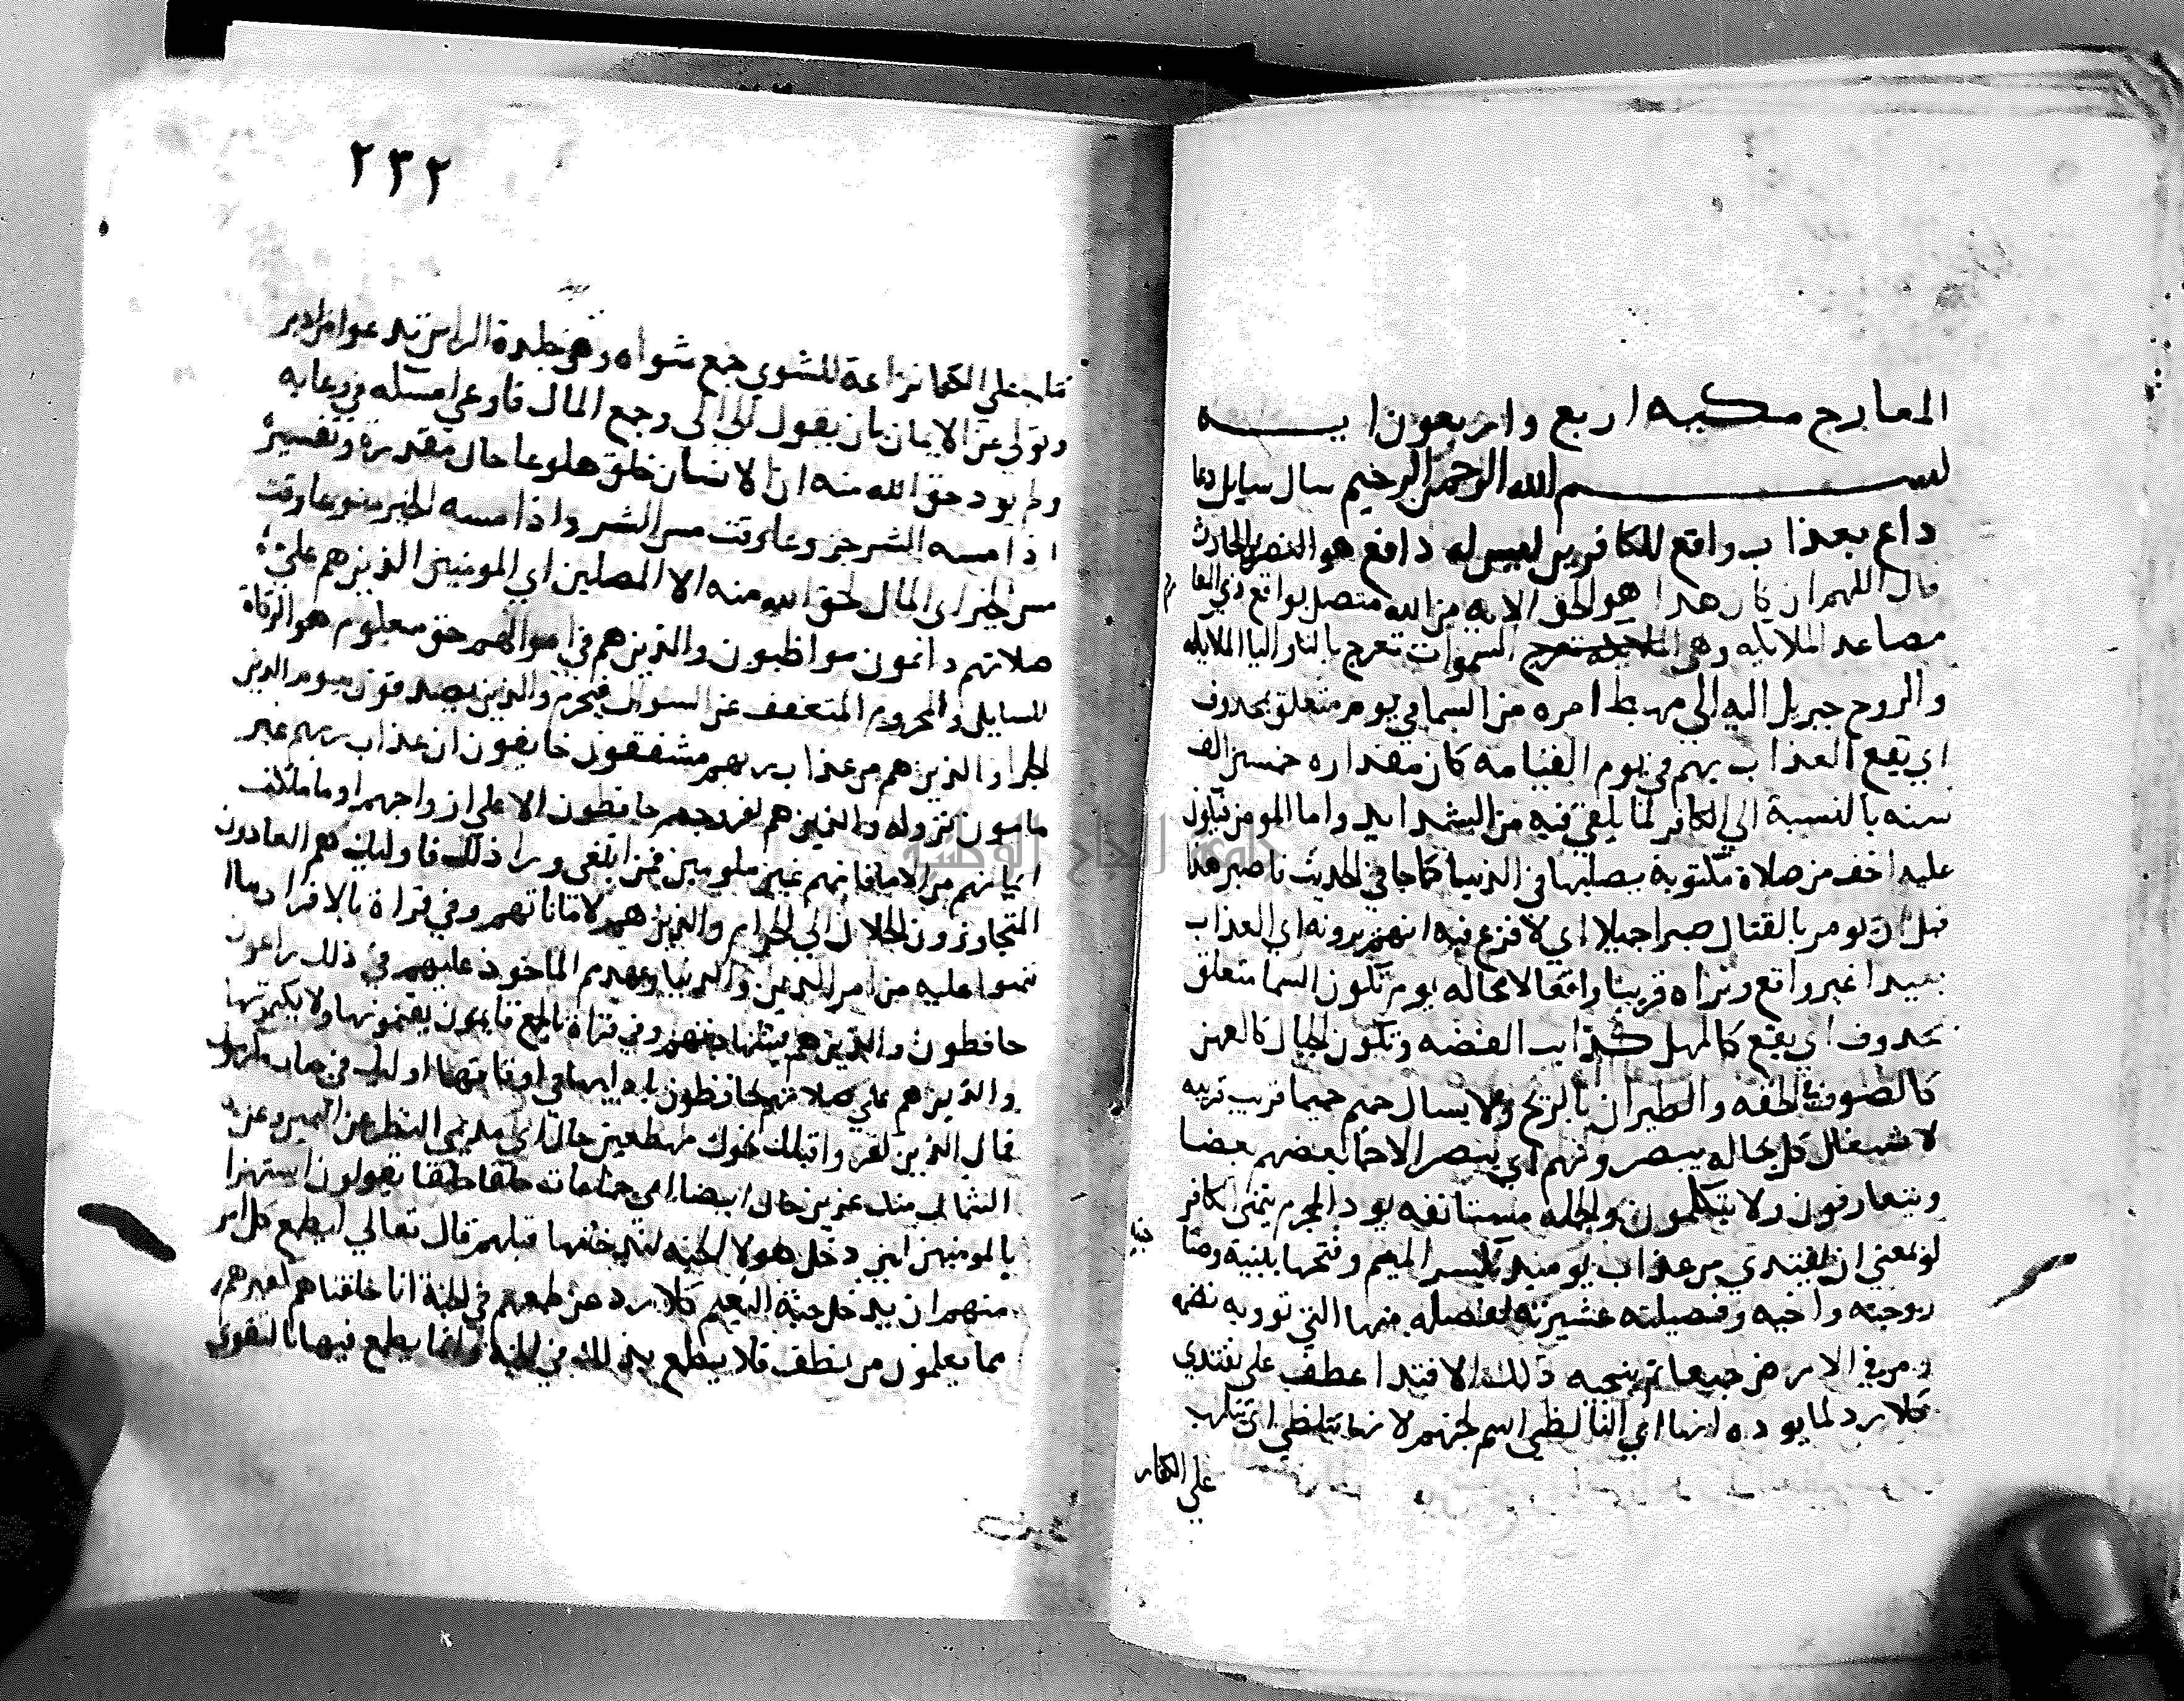 المعارج مكيه اربع واربعون ايـــــه
بســـــــم الله الرحمن الرحيم سال سايل دعا
داع بعذاب واقع للكافرين ليس له دافع هو النضر بن الحارث
قال اللهم ان كان هذا هو الحق الايه من الله متصل بواقع ذي المعا
رج
مصاعد الملايكه وهي السموات تعرج بالتا واليا الملايكه
والروح جبريل اليه الي مهبط امره من السما في يوم متعلق بمحذوف
اي يقع العذاب بهم في يوم القيامه كان مقداره خمسين الف
سنه بالنسبة الي الكافر لما يلقي فيه من الشدايد واما المومن فيكون
عليه اخف من صلاة مكتوبة يصليها في الدنيا كما جا في الحديث فاصبر هذا
قبل ان يومر بالقتال صبرا جميلا اي لا فزع فيه انهم يرونه اي العذاب
بعيدا غير واقع ونراه قريبا واقعا لا محاله يوم تكون السما متعلق
بمحذوف اي يقع كالمهل كذايب الفضه وتكون الجبال كالعهن
كالصوف في الخفه والطيران بالريح ولا يسال حميم حميما قريب قريبه
لاشتغال كل بحاله يبصرونهم اي يبصر الاحما بعضهم بعضا
ويتعارفون ولا يتكلمون والجمله مستانفه يود المجرم يتمني الكافر
لو بمعني ان يفتدي من عذاب يوميذ بكسر الميم وفتحها ببنيه وصا
حبته
زوجته واخيه وفصيلته عشيرته لفصله منها التي توويه تضمه
ومن في الارض جميعا ثم ينجيه ذلك الافتدا عطف علي يفتدي
كلا رد لما يوده انها اي النا لظي اسم لجهنم لانها تتلظي اي تتلهب
علي الكفار
٢٣٢
تتلظي علي الكفار نزاعة للشوي جمع شواه وهي جلدة الراس تدعوا من ادبر
وتولي عن الايمان بان يقول الي الي وجمع المال فاوعي امسكه في وعايه
ولم يود حق الله منه ان الانسان خلق هلوعا حال مقدرة وتفسيره
اذا مسه الشر جزوعا وقت مس الشر واذا مسه الخير منوعا وقت
مس الخير اي المال لحق الله منه الا المصلين اي المومنين الذين هم علي
صلاتهم دائمون مواظبون والذين هم في اموالهم حق معلوم هو الزكاة
للسايل والمحروم المتعفف عن السوال فيحرم والذين يصدقون بيوم الدين
الجزا والذين هم من عذاب ربهم مشفقون خايفون ان عذاب ربهم غير
مامون نزوله والذين هم لفروجهم حافظون الا علي ازواجهم او ما ملكت
ايمانهم من الاما فانهم غير ملومين فمن ابتغي ورا ذلك فاوليك هم العادون
المتجاوزون الحلال الي الحرام والذين هم لاماناتهم وفي قراة بالافراد ما ا
تمنوا عليه من امر الدين والدنيا وعهدهم الماخوذ عليهم في ذلك راعون
حافظون والذين هم بشهادتهم وفي قراة بالجمع قايمون يقيمونها ولا يكتمونها
والذين هم علي صلاتهم يحافظون بادايها في اوقاتها اوليك في جنات مكرمون
فمال الذين كفروا قبلك نحوك مهطعين حال اي مديمي النظر عن اليمين وعن
الشمال منك عزين حال ايضا اي جماعات حلقا حلقا يقولون استهزا
بالمومنين لين دخل هولا الجنه لندخلنها قبلهم قال تعالي ايطمع كل امر
منهم ان يدخل جنة النعيم كلا ردع عن طمعهم في الجنة انا خلقناهم كغيرهم
مما يعلمون من نطف فلا يطمع بذلك في الجنه وانما يطمع فيها بالتقوي